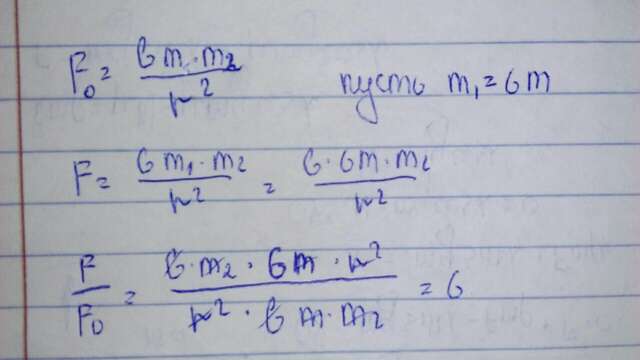 F₀ = G m · m₂ / r² пусть m₁ = 6m
F = G m₁ · m₂ / r² = G · 6m · m₂ / r²
F / F₀ = G · m₂ · 6m · r² / r² · G m · m₂ = 6